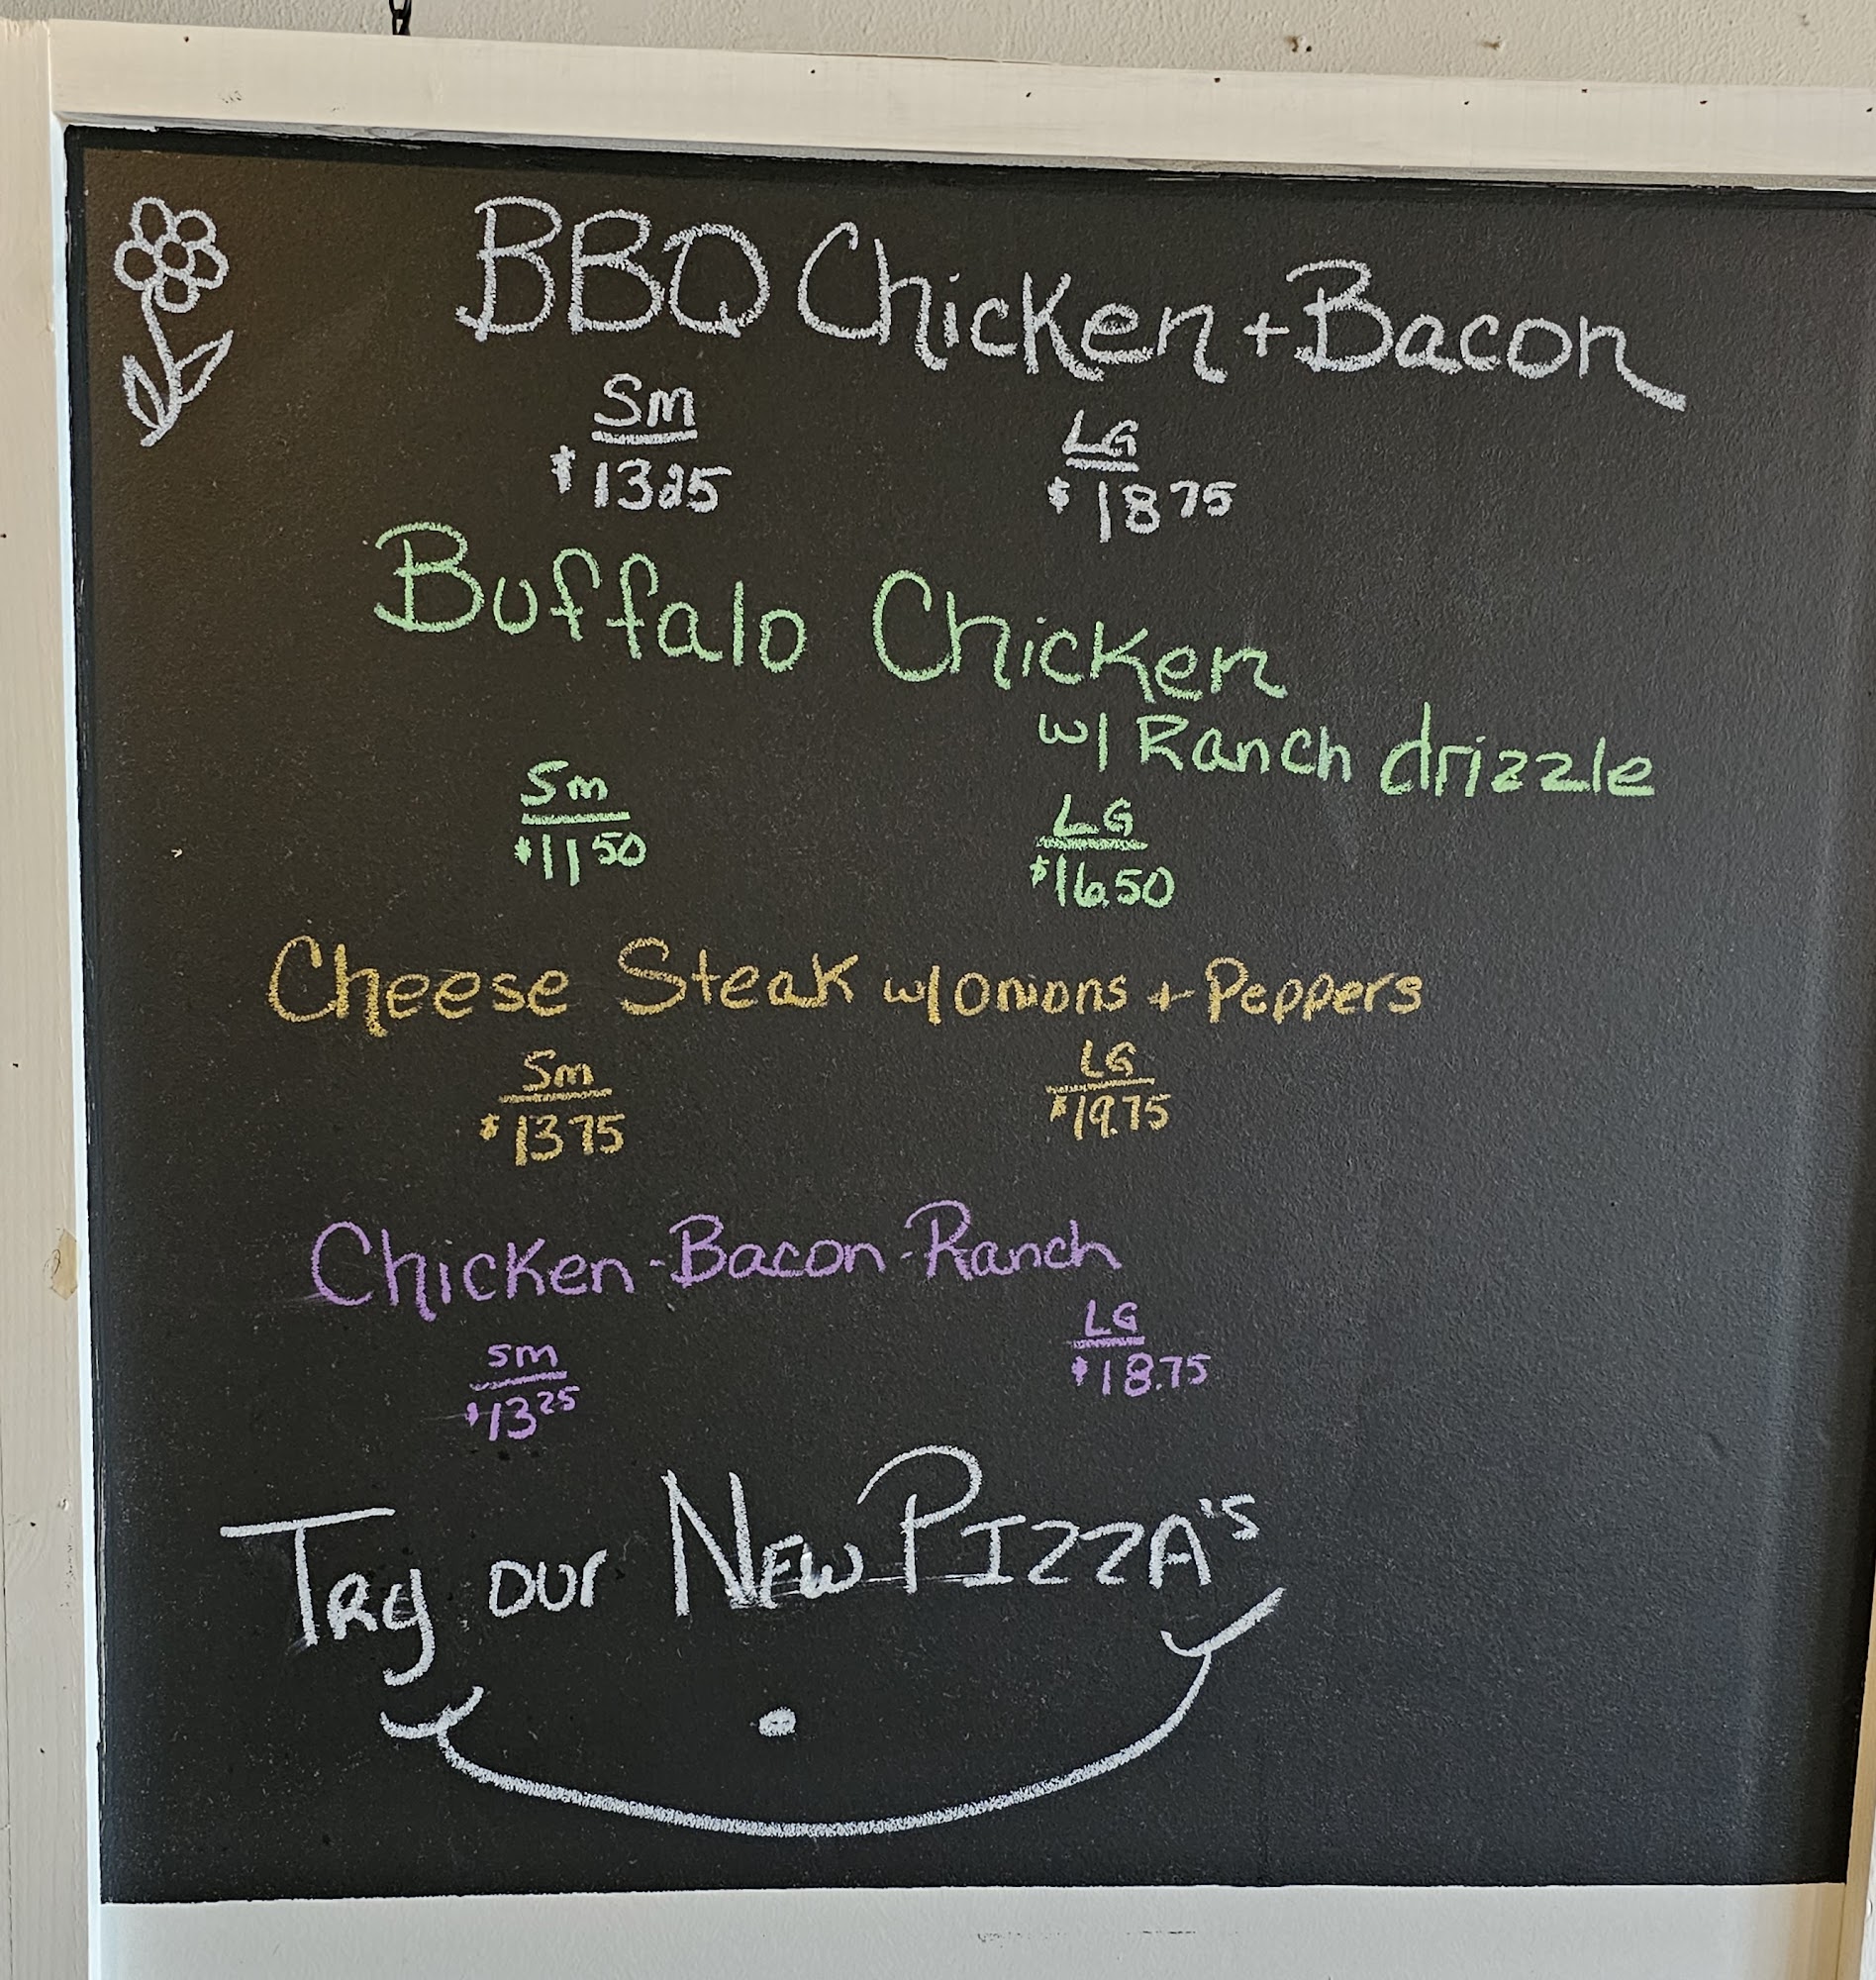 BBQ Chicken + Bacon
Sm LG
$1325 $1875
Buffalo Chicken
w/ Ranch drizzle
Sm LG
$1150 $16.50
Cheese Steak w/ Onions + Peppers
Sm LG
$1375 $19.75
Chicken-Bacon-Ranch
Sm LG
$1325 $18.75
Try our New PIZZA's